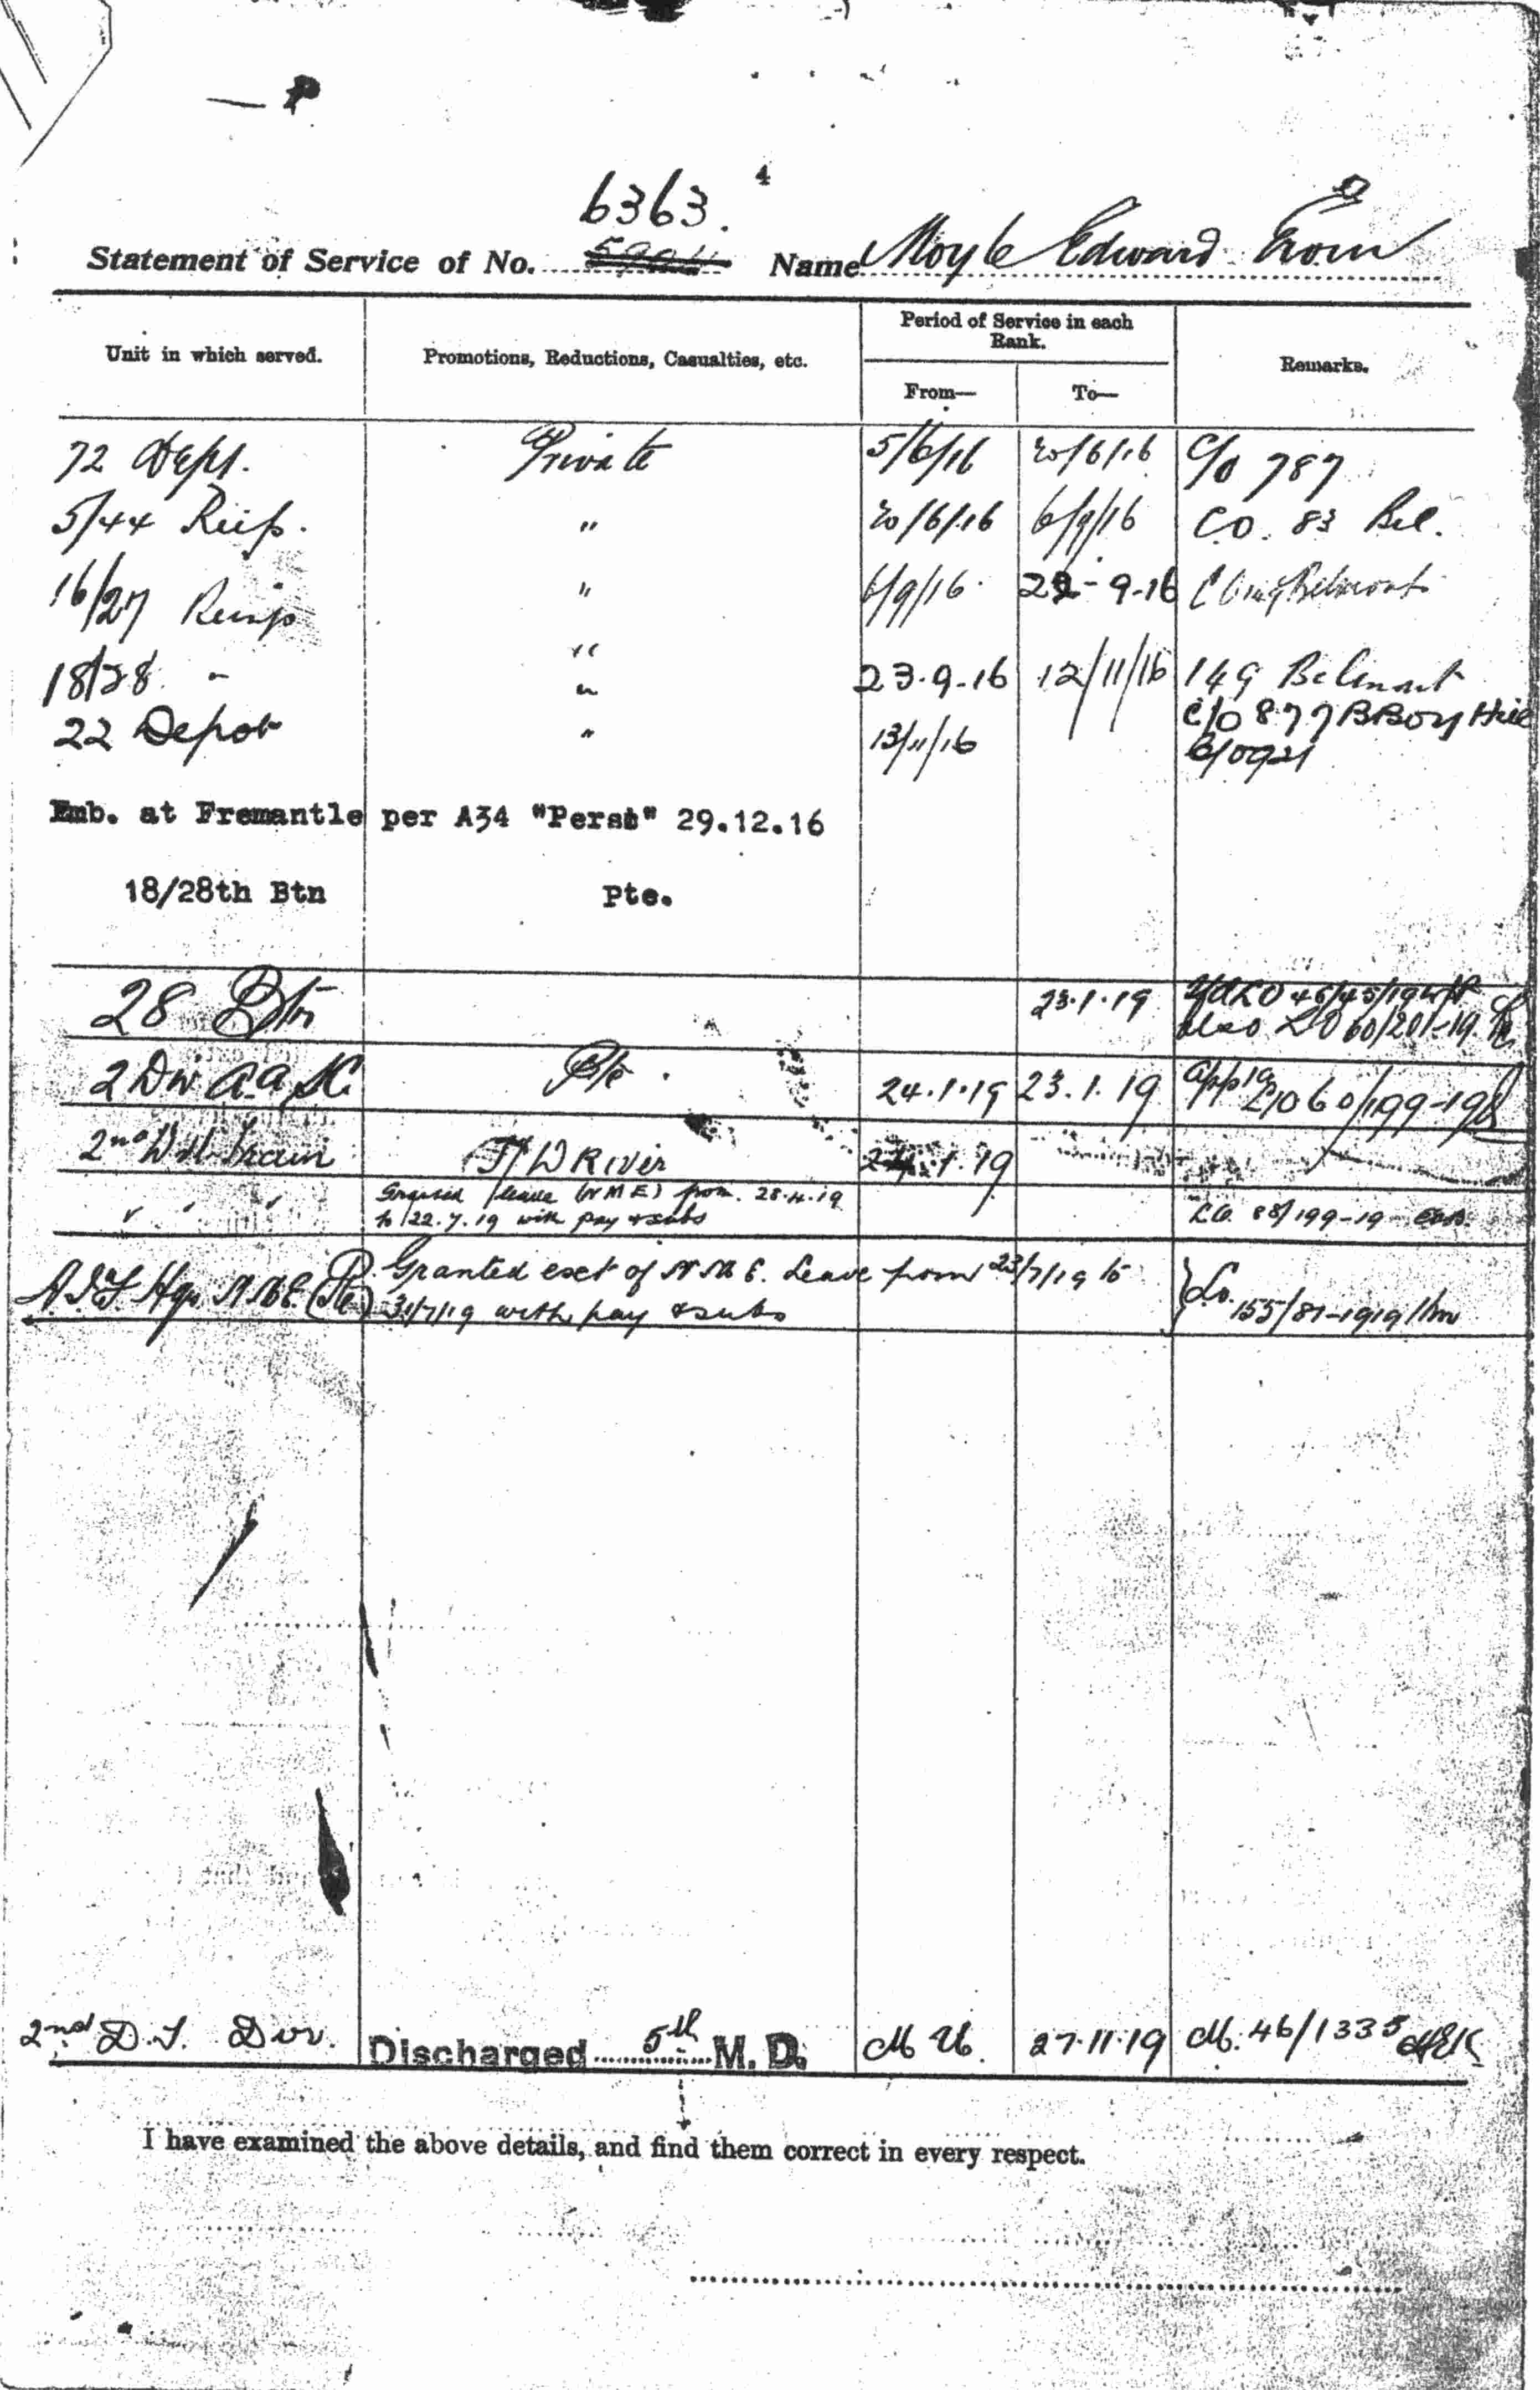 4
6363.
Statement of Service of No. Name Moyle Edward
Unit in which served. Promotions, Reductions, Casualties, etc. Period of Service in each Rank. Remarks.
From— To—
72 Dept. Private 5/6/16 20/6/16 C/O 787
5/44 Reif. " 20/6/16 6/9/16 C.O. 83 Bel.
16/27 Reinf " 6/9/16 22-9-16
18/28 - " 23.9.16 12/11/16 149 Belmont
22 Depot " 13/11/16 C/O 877 BBoy Hill
Emb. at Fremantle per A34 "Persic" 29.12.16
18/28th Btn Pte.
28 Btn 23.1.19
also LO 60/201-19.
2 Div Pte. 24.1.19 23.1.19 LO 60/199-19
2nd Div Train T/Driver 24.1.19
" " " Granted leave (NME) from 28.4.19
to 22.7.19 with pay & subs L.O. 88/199-19
A.I.F. Hqs. N.M.E. (Pte) Granted ext of N.M.E. Leave from 23/7/19 to
31/7/19 with pay & subs Lo. 155/81-1919
2nd D.T. Div. Discharged 5th M.D. M U. 27.11.19 M. 46/1335
I have examined the above details, and find them correct in every respect.